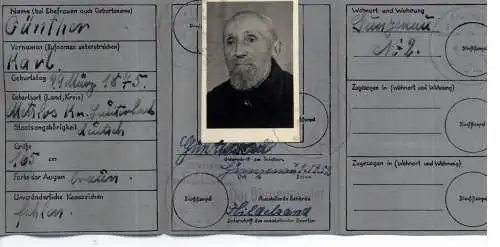 Name (bei Ehefrauen auch Geburtsname)
Günther
Vornamen (Rufnamen unterstreichen)
Karl.
Geburtstag 29. März 1875.
Geburtsort (Land, Kreis)
Staatsangehörigkeit deutsch
Größe
165 cm
Farbe der Augen braun.
Unveränderliche Kennzeichen
fehlen.
Unterschrift des Inhabers
Ort
Datum
Dienststempel
Der Bürgermeister
Ausstellende Behörde
Hildebrand
Unterschrift des ausstellenden Beamten
Wohnort und Wohnung
Nr. 2.
Dienststempel
Zugezogen in (Wohnort und Wohnung)
Dienststempel
Zugezogen in (Wohnort und Wohnung)
Dienststempel